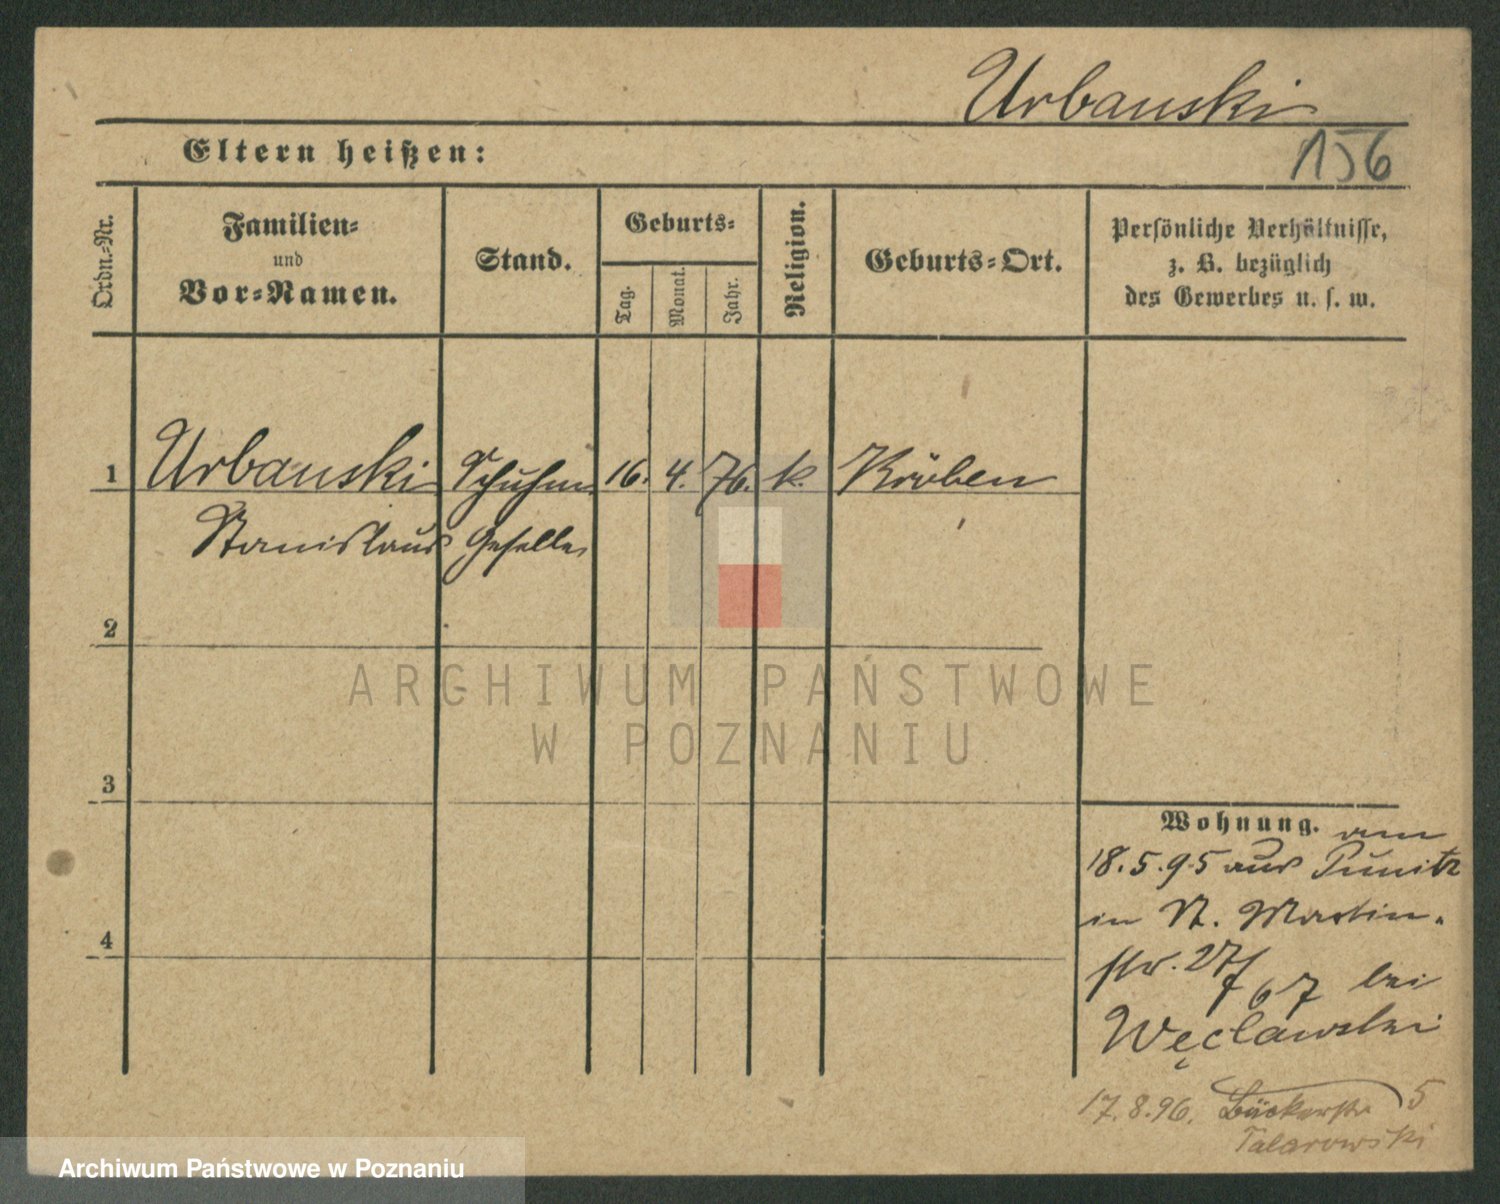 Urbanski
156
Eltern heißen:
Ordn.-Nr.
Familien-
und
Vor-Namen.
Stand.
Geburts-
Tag.
Monat.
Jahr.
Religion.
Geburts-Ort.
Persönliche Verhältnisse,
z. B. bezüglich
des Gewerbes u. s. w.
1 Urbanski Schuhm. 16. 4. 76. k. Kröben
Stanislaus Geselle
2
ARCHIWUM PAŃSTWOWE
W POZNANIU
3
Wohnung. am
18.5.95 aus Punitz
in St. Martin-
str. 27/67 bei
Węclawski
4
17.8.96. Bäckerstr 5
Talarowski
Archiwum Państwowe w Poznaniu